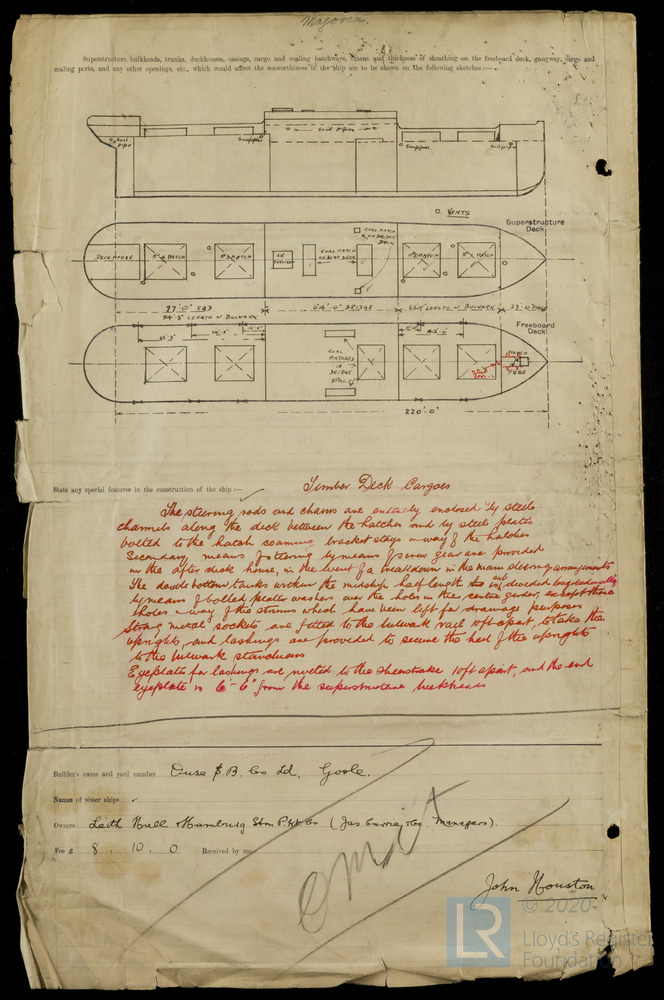 Majorca.
Superstructure bulkheads, trunks, deckhouses, casings, cargo and coaling hatchways, extent and thickness of sheathing on the freeboard deck, gangway, cargo and
coaling ports, and any other openings, etc., which would affect the seaworthiness of the ship are to be shown on the following sketches:—
Soil pipe
Soil pipes
O. VENTS
Superstructure
Deck
DECK HOUSE
Nº 4 HATCH
Nº 3 HATCH
COAL HATCH
ON BOAT DECK
COAL HATCH
ON BRIDGE
DECK
Nº 2 HATCH
Nº 1 HATCH
77'-0" QRD
54'-0" BRIDGE
LENGTH OF BULWARK
LENGTH OF BULWARK
Freeboard
Deck
COAL
HATCHES
IN
BRIDGE
SPACE
HATCH
220'-0"
State any special features in the construction of the ship:—
Timber Deck Cargoes
The steering rods and chains are entirely enclosed by steel
channels along the deck between the hatches and by steel plates
bolted to the hatch coaming bracket stays in way of the hatches
Secondary means of steering by means of screw gear are provided
in the after deck house, in the event of a breakdown in the main steering arrangements
The double bottom tanks within the midship half length are subdivided longitudinally
by means of bolted plate washers over the holes in the centre girder, except those
holes in way of the strums which have been left for drainage purposes
Strong metal sockets are fitted to the bulwark rail 10ft apart, to take the
uprights, and lashings are provided to secure the heel of the uprights
to the bulwark stanchions
Eyeplates for lashings are riveted to the sheerstrake 10ft apart, and the end
eyeplate is 6'-6" from the superstructure bulkheads
Builder's name and yard number Ouse S B. Co Ld. Goole.
Names of sister ships
Owners Leith Hull & Hamburg Stm Pkt Co (Jas Currie & Co. Managers).
Fee £ 8 : 10 : 0 Received by me
omit
John Houston
© 2020
LR
Lloyd's Register
Foundation